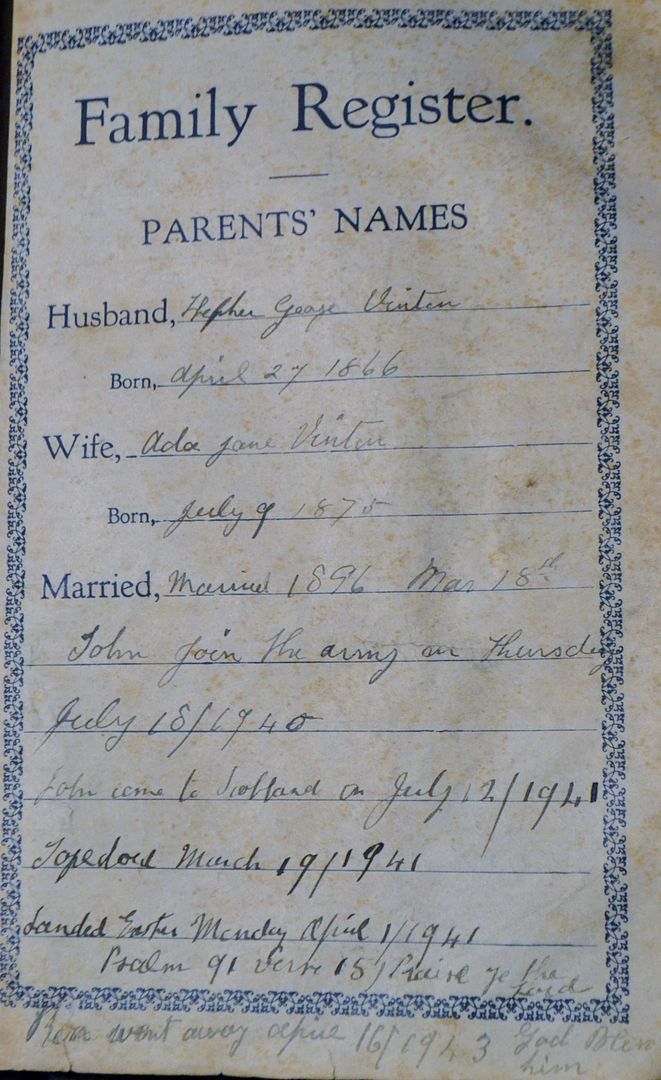 Family Register.
PARENTS' NAMES
Husband, Hepher George Vinton
Born, April 27 1866
Wife, Ada Jane Vinton
Born, July 9 1875
Married, Married 1896 Mar 18th
John Join the army on Thursday
July 18/1940
John come to Scotland on July 12/1941
Topedoed March 19/1941
Landed Easter Monday April 1/1941
Psalm 91 verse 15 Praise ye the Lord
went away April 16/1943 God Bless him